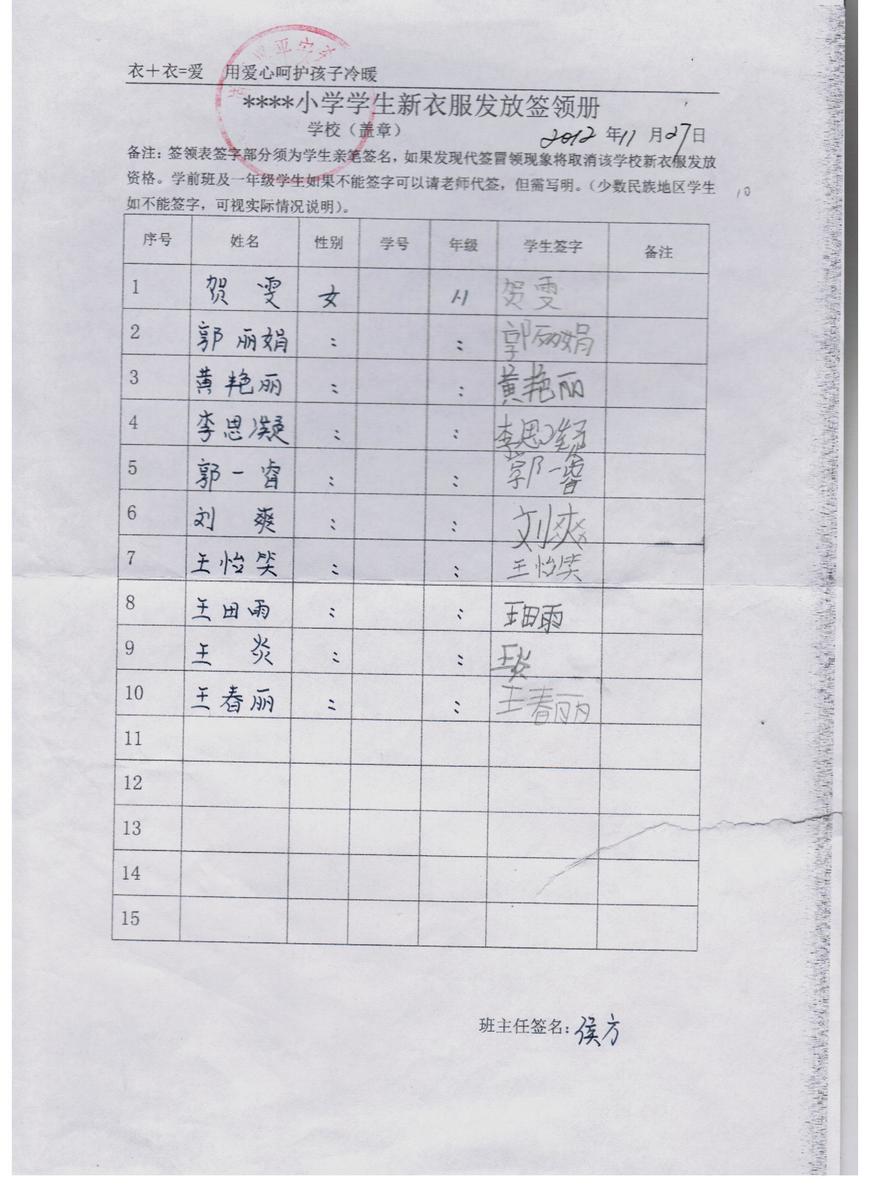 平安
衣+衣=爱 用爱心呵护孩子冷暖
****小学学生新衣服发放签领册
学校（盖章） 2012 年 11 月 27 日
备注：签领表签字部分须为学生亲笔签名，如果发现代签冒领现象将取消该学校新衣服发放
资格。学前班及一年级学生如果不能签字可以请老师代签，但需写明。（少数民族地区学生
如不能签字，可视实际情况说明）。
10
序号 姓名 性别 学号 年级 学生签字 备注
1 贺雯 女 贺雯
2 郭丽娟 : : 郭丽娟
3 黄艳丽 : : 黄艳丽
4 李思凝 : : 李思凝
5 郭一睿 : : 郭一睿
6 刘爽 : : 刘爽
7 王怡笑 : : 王怡笑
8 王田雨 : : 王田雨
9 王炎 : : 王炎
10 王春丽 : : 王春丽
11
12
13
14
15
班主任签名：侯方